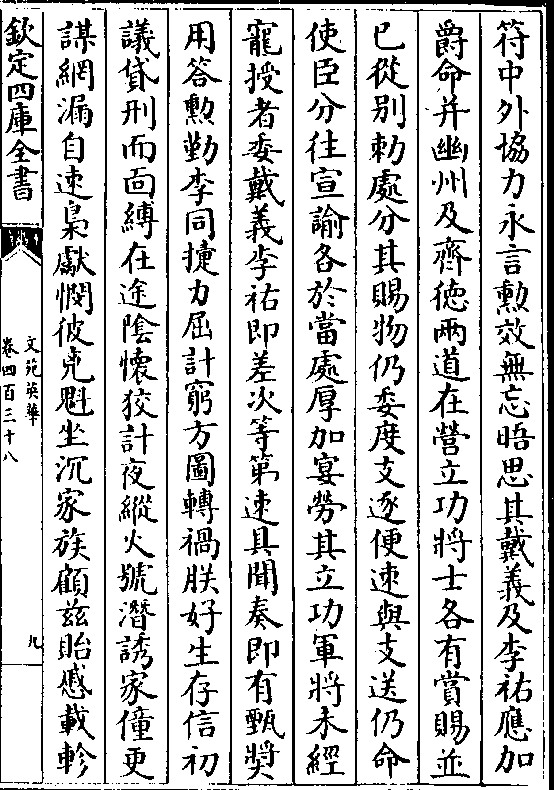 符中外協力永言勲效無忘晤思其戴義及李祐應加
爵命并幽州及齊德兩道在營立功將士各有賞賜並
已從别勅處分其賜物仍委度支逐便速與支送仍命
使臣分往宣諭各於當處厚加宴勞其立功軍將未經
寵授者委戴義李祐即差次等第速具聞奏即有甄奬
用答勲勤李同捷力屈計窮方圖轉禍朕好生存信初
議貸刑而面縛在途陰懷狡計夜縱火號潜誘家僮更
謀網漏自速梟獻憫彼兇魁坐沉家族顧兹貽慼載軫
欽定四庫全書
文苑英華
卷四百三十八
九